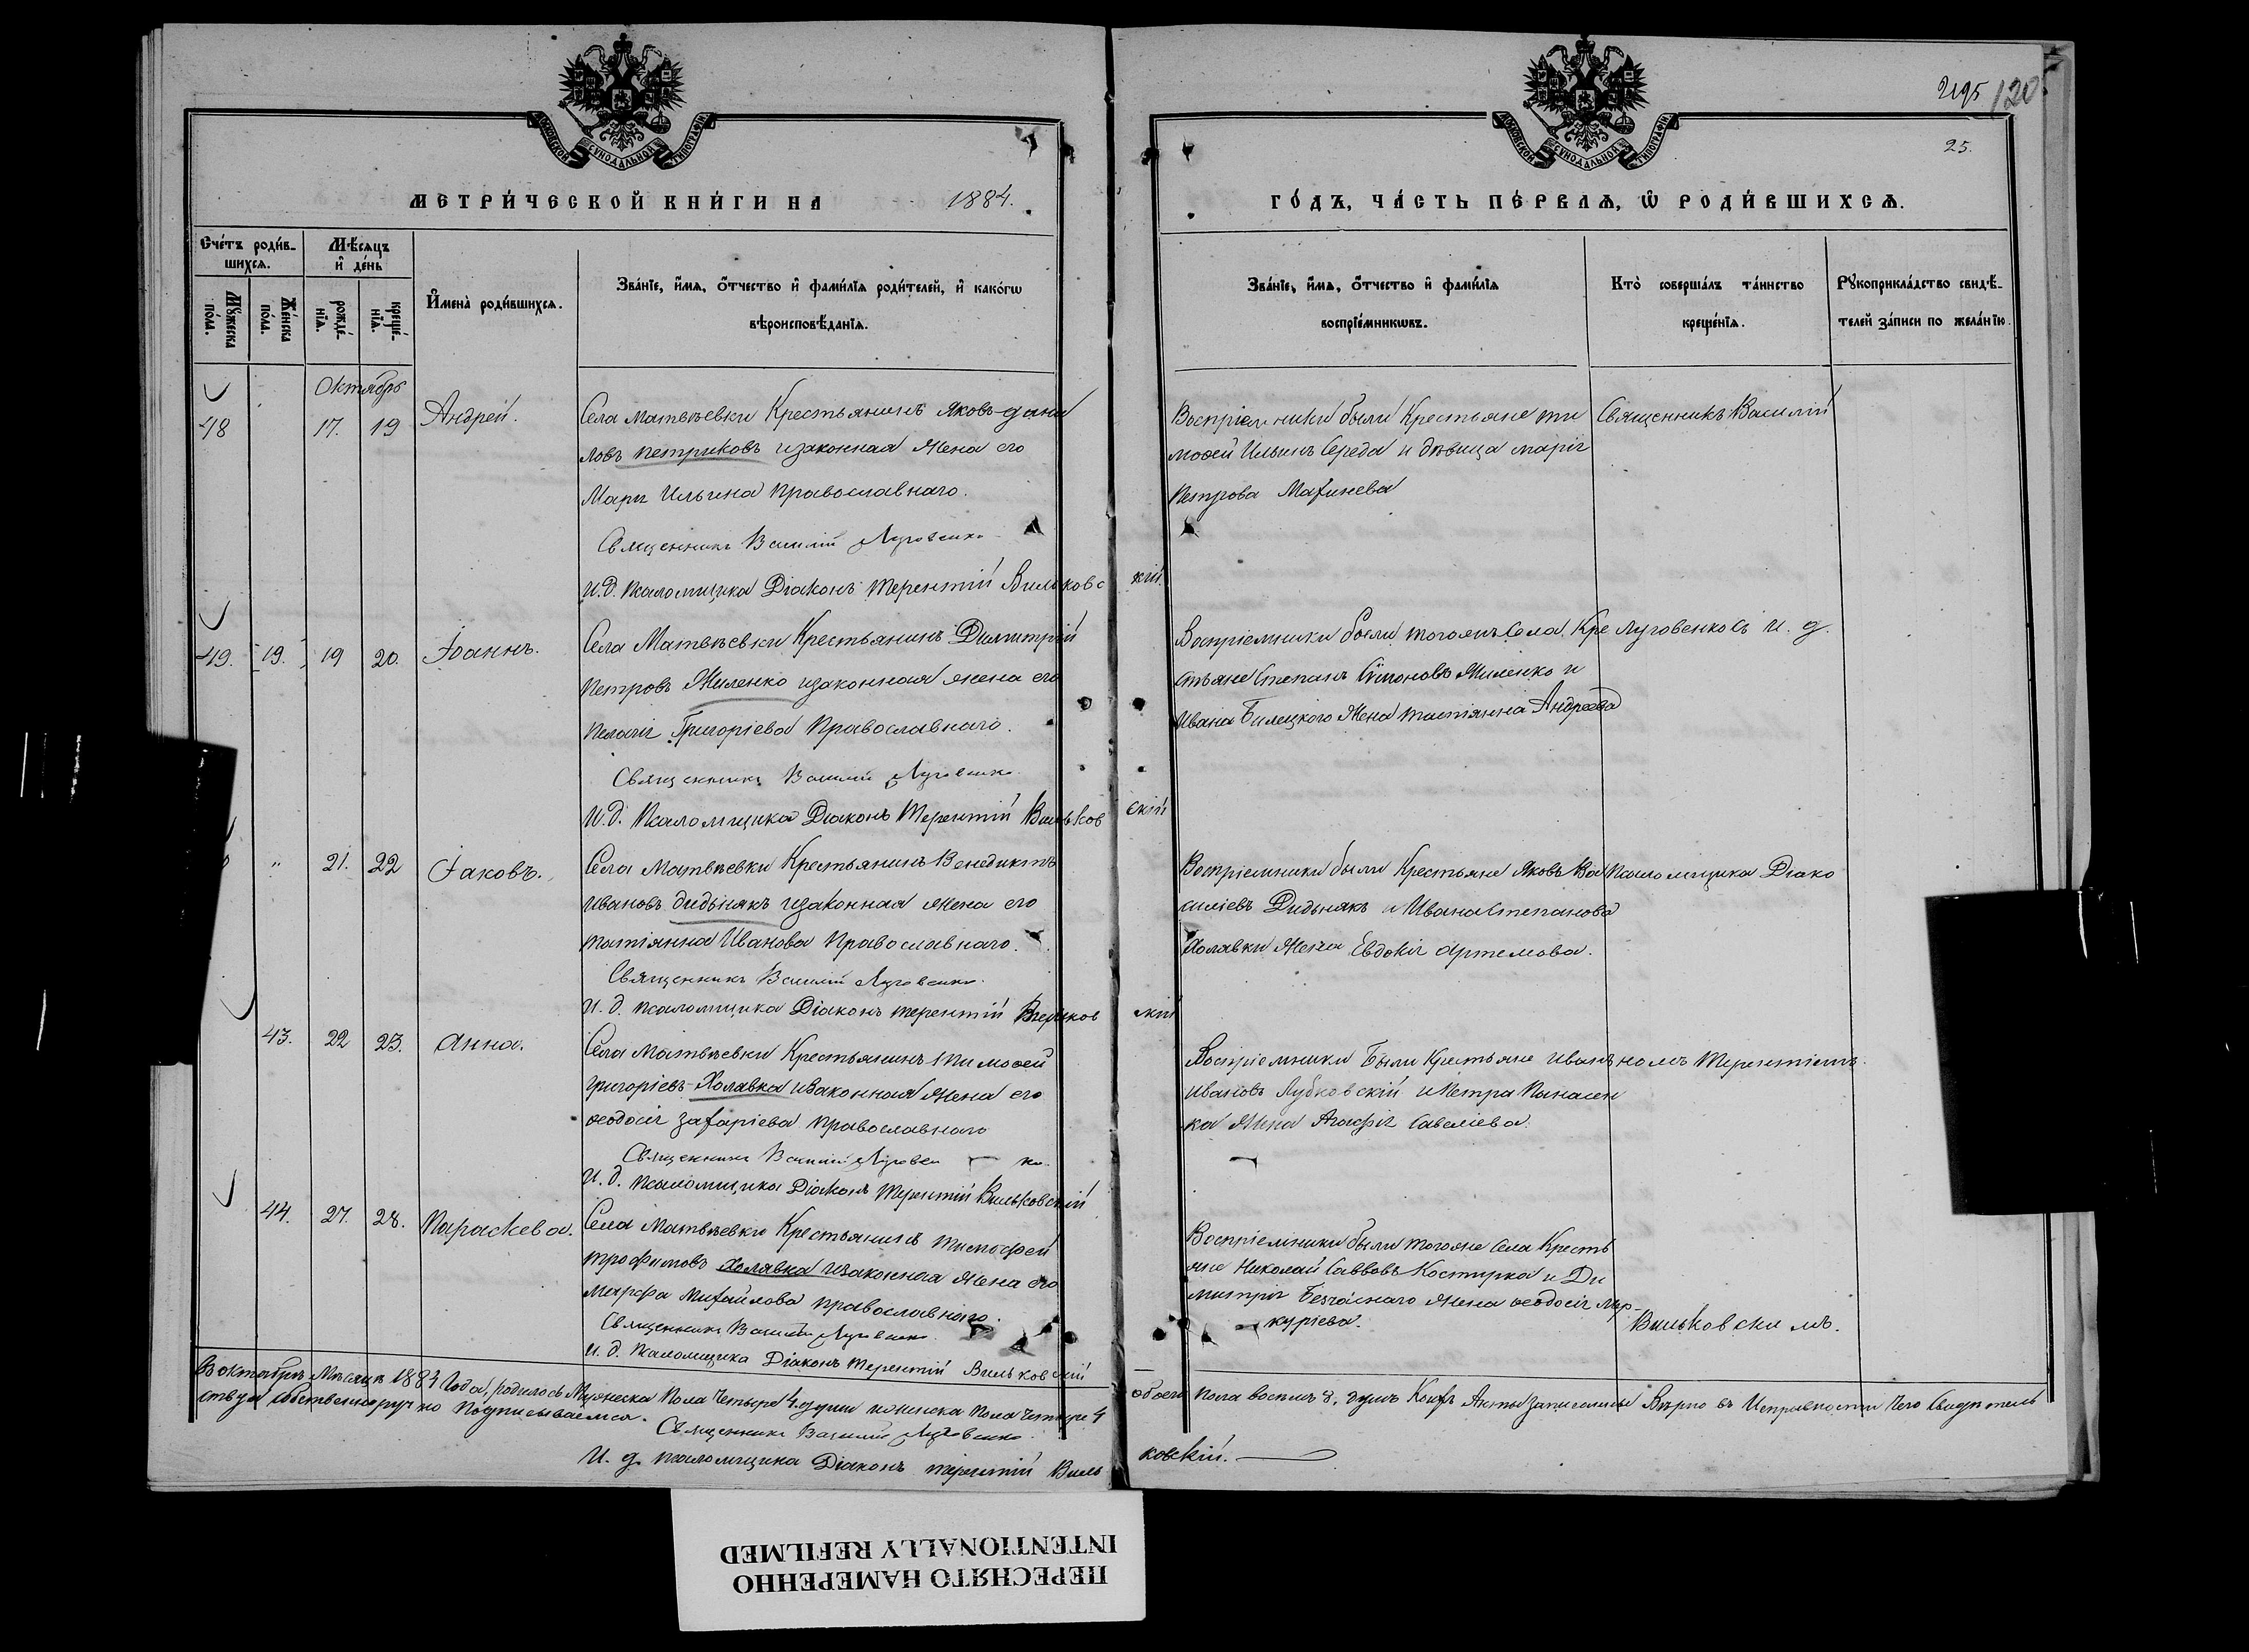 2195 120
25.
МОСКОВСКОЙ СѴНОДАЛЬНОЙ ТИПОГРАФІИ
МОСКОВСКОЙ СѴНОДАЛЬНОЙ ТИПОГРАФІИ
МЕТРИ́ЧЕСКОЙ КНИ́ГИ НА 1884.
ГО́ДЪ, ЧА́СТЬ ПЕ́РВАѦ, Ѽ РОДИ́ВШИХСѦ.
Счéтъ роди́в-
шихсѧ.
Мѣ́сѧцъ
и҆ де́нь
Мꙋ́жеска по́ла.
Же́нска по́ла.
рожде́-
нїѧ.
креще́-
нїѧ.
И҆мена̀ роди́вшихсѧ.
Зва́нїе, и҆́мѧ, ѻ҆́тчество и҆ фами́лїѧ роди́телей, и҆ како́гѡ
вѣроисповѣ́данїѧ.
Зва́нїе, и҆́мѧ, ѻ҆́тчество и҆ фами́лїѧ
воспрїе́мникѡвъ.
Кто̀ соверша́лъ та́инство
креще́нїѧ.
Рꙋкоприкла́дство свидѣ́-
телей за́писи по жела́нїю.
Октябрь
48 17. 19 Андрей.
Села Матвѣевки Крестьянинъ Яковъ Дани
ловъ Петриковъ изаконная Жена его
Марія Ильина Православнаго.
Священникъ Василій Луговенко
И.д. Псаломщика Діаконъ Терентій Вильковскій.
Воспріемники были Крестьяне ти
мофей Ильинъ Середа и дѣвица марія
Петрова
Священникъ Василій
49. 19. 19 20. Іоаннъ.
Села Матвѣевки Крестьянинъ Димитрій
Петровъ Жиленко изаконная жена его
Пелагія Григоріева Православнаго.
Священникъ Василій Луговенко
И.д. Псаломщика Діаконъ Терентій Вильковскій
Воспріемники были тогожъ Села Кре
стьяне Степанъ Симоновъ Жиленко и
Ивана Билецкого Жена татіянна Андреева
Луговенковъ и. д.
" 21. 22 Іаковъ.
Села Матвѣевки Крестьянинъ Венедиктъ
Ивановъ Дидынякъ изаконная жена его
татіянна Иванова Православнаго.
Священникъ Василій Луговенко.
И. д. псаломщика Діаконъ терентій Вильковскій
Воспріемники были Крестьяне Яковъ Ва
силіевъ Дидынякъ и Ивана Степанова
Холявки Жена Евдокія Артемова.
Псаломщика Діако
43. 22 23. Анна.
Села Матвѣевки Крестьянинъ Тимофей
григоріевъ Холавка изаконная Жена его
Ѳеодосія Захаріева Православнаго
Священникъ Василій Луговенко
И. д. псаломщика Діаконъ Терентій Вильковскій
Воспріемники Были Крестьяне Иванъ
Ивановъ Лубковскій и Петра Панасен
ка Жена Агафія Савеліева.
номъ Терентіемъ
44. 27. 28. Параскева.
Села Матвѣевки Крестьянинъ Тимофей
трофимовъ Холявка изаконная Жена его
Марфа Михайлова православнаго.
Священникъ Василій Луговенко
и. д. Псаломщика Діаконъ терентій Вильковскій
Воспріемники были тогоже Села Кресть
яне Николай Саввовъ Костырка и Ди
митрія Безчаснаго Жена Ѳеодосія Мер-
куріева.
Вильковскимъ.
В октябрѣ Мѣсяцѣ 1884 Года, родилось Мужеска Пола Четыре 4. души иженска Пола четыре 4 обоего пола восемь 8. душъ Акты записаны Вѣрно въ Исправности Чего Свидѣтель
ствуя собственноручно Подписываемся.
Священникъ Василій Луговенко
И. д. псаломщика Діаконъ терентій Вильковскій.
ПЕРЕСНЯТО НАМЕРЕННО
INTENTIONALLY REFILMED